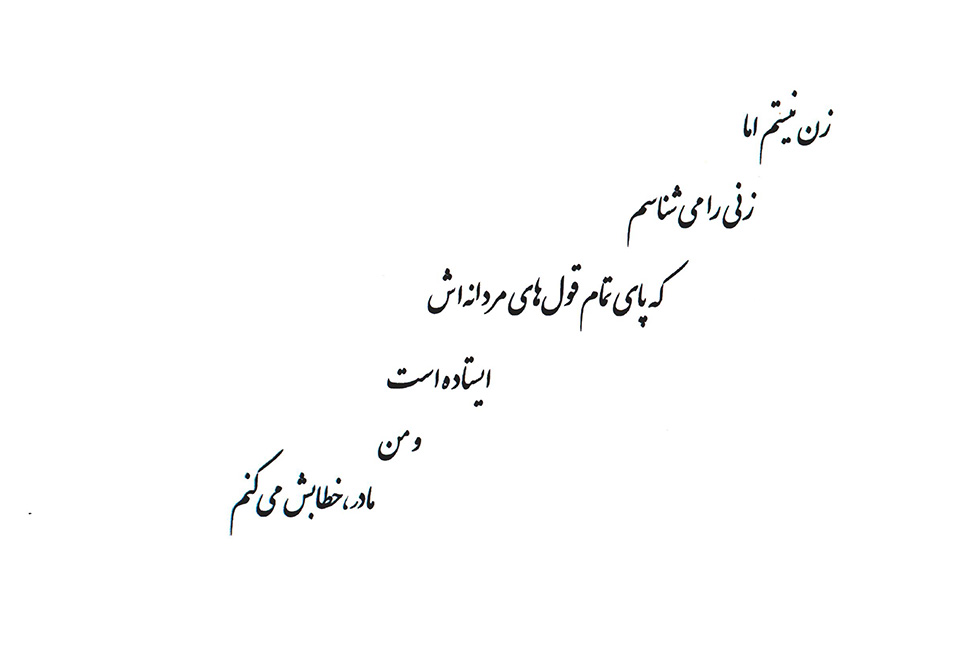 زن نیستم اما
زنی را می‌شناسم
که پای تمام قول‌های مردانه‌اش
ایستاده است
و من
مادر، خطابش می‌کنم